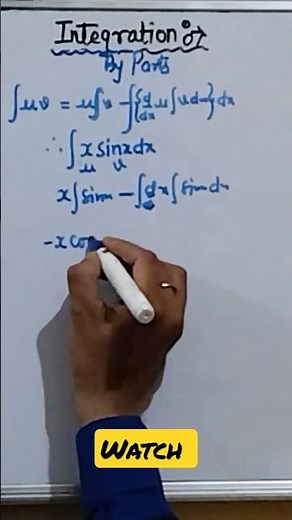 Integration of
By Parts
∫uv = u∫v - ∫{d/dx u ∫v dx} dx
∴ ∫x sinx dx
u v
x∫sinx - ∫dx∫sinx dx
-x co
WATCH